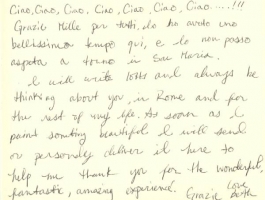 Ciao, Ciao, Ciao, Ciao, Ciao, Ciao, Ciao.....!!!
Grazie Mille per tutti. Io ho avuto uno
bellissimo tempo qui, e Io non posso
aspeta a torno in San Maria.
I will write lotts and always be
thinking about you, in Rome and for
the rest of my life. As soon as I
paint somthing beautiful I will send
or personaly deliver it here to
help me thank you for the wonderful,
fantastic, amazing experience. Grazie Love
Beth